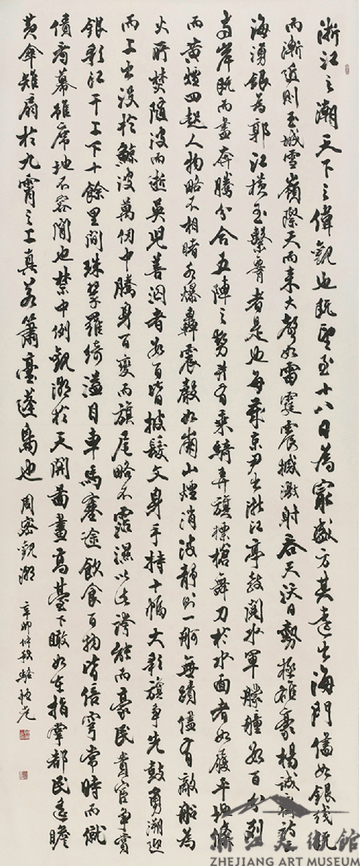 浙江之潮天下之偉觀也既望至十八日為最盛方其遠出海門僅如銀綫既
而漸近則玉城雪嶺際天而來大聲如雷霆震撼激射吞天沃日勢極雄豪楊誠齋詩云
海湧銀為郭江橫玉繫腰者是也每歲京尹出浙江亭教閱水軍艨艟數百分列
兩岸既而盡奔騰分合五陣之勢并有乘騎弄旗標槍舞刀於水面者如履平地倏
而黃煙四起人物略不相睹水爆轟震聲如崩山煙消波靜則一舸無蹟僅有敵船為
火所焚隨波而逝吳兒善泅者數百皆披髮文身手持十幅大彩旗爭先鼓勇溯迎
而上出沒於鯨波萬仞中騰身百變而旗尾略不霑濕以此誇能而豪民貴宦爭賞
銀彩江干上下十餘里間珠翠羅綺溢目車馬塞途飲食百物皆倍穹常時而僦
賃看幕雖席地不容閒也禁中例觀潮於天開圖畫高臺下瞰如在指掌都民遙瞻
黃傘雉扇於九霄之上真若簫臺蓬島也 周密觀潮 辛卯仲秋
浙江美術館
ZHEJIANG ART MUSEUM